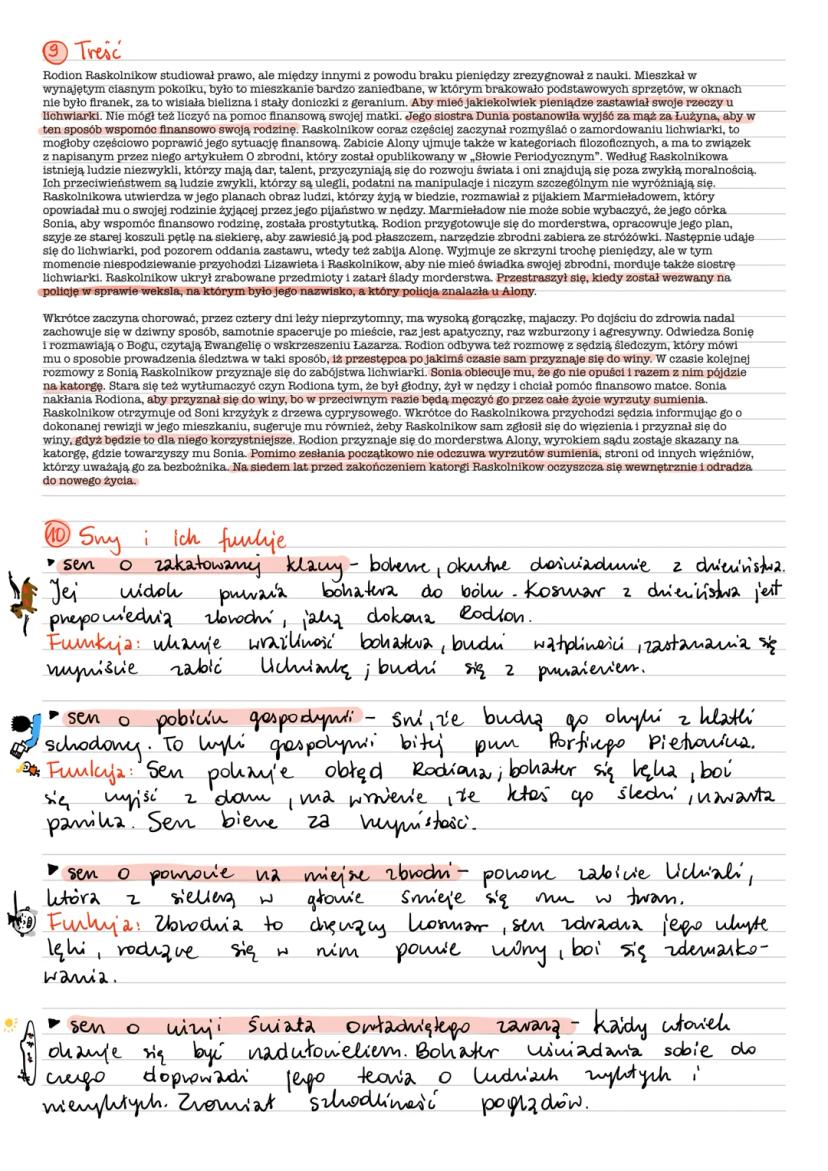 9 Treść
Rodion Raskolnikow studiował prawo, ale między innymi z powodu braku pieniędzy zrezygnował z nauki. Mieszkał w
wynajętym ciasnym pokoiku, było to mieszkanie bardzo zaniedbane, w którym brakowało podstawowych sprzętów, w oknach
nie było firanek, za to wisiała bielizna i stały doniczki z geranium. Aby mieć jakiekolwiek pieniądze zastawiał swoje rzeczy u
lichwiarki. Nie mógł też liczyć na pomoc finansową swojej matki. Jego siostra Dunia postanowiła wyjść za mąż za Łużyna, aby w
ten sposób wspomóc finansowo swoją rodzinę. Raskolnikow coraz częściej zaczynał rozmyślać o zamordowaniu lichwiarki, to
mogłoby częściowo poprawić jego sytuację finansową. Zabicie Alony ujmuje także w kategoriach filozoficznych, a ma to związek
z napisanym przez niego artykułem O zbrodni, który został opublikowany w „Słowie Periodycznym”. Według Raskolnikowa
istnieją ludzie niezwykli, którzy mają dar, talent, przyczyniają się do rozwoju świata i oni znajdują się poza zwykłą moralnością.
Ich przeciwieństwem są ludzie zwykli, którzy są ulegli, podatni na manipulacje i niczym szczególnym nie wyróżniają się.
Raskolnikowa utwierdza w jego planach obraz ludzi, którzy żyją w biedzie, rozmawiał z pijakiem Marmieładowem, który
opowiadał mu o swojej rodzinie żyjącej przez jego pijaństwo w nędzy. Marmieładow nie może sobie wybaczyć, że jego córka
Sonia, aby wspomóc finansowo rodzinę, została prostytutką. Rodion przygotowuje się do morderstwa, opracowuje jego plan,
szyje ze starej koszuli pętlę na siekierę, aby zawiesić ją pod płaszczem, narzędzie zbrodni zabiera ze stróżówki. Następnie udaje
się do lichwiarki, pod pozorem oddania zastawu, wtedy też zabija Alonę. Wyjmuje ze skrzyni trochę pieniędzy, ale w tym
momencie niespodziewanie przychodzi Lizawieta i Raskolnikow, aby nie mieć świadka swojej zbrodni, morduje także siostrę
lichwiarki. Raskolnikow ukrył zrabowane przedmioty i zatarł ślady morderstwa. Przestraszył się, kiedy został wezwany na
policję w sprawie weksla, na którym było jego nazwisko, a który policja znalazła u Alony.
Wkrótce zaczyna chorować, przez cztery dni leży nieprzytomny, ma wysoką gorączkę, majaczy. Po dojściu do zdrowia nadal
zachowuje się w dziwny sposób, samotnie spaceruje po mieście, raz jest apatyczny, raz wzburzony i agresywny. Odwiedza Sonię
i rozmawiają o Bogu, czytają Ewangelię o wskrzeszeniu Łazarza. Rodion odbywa też rozmowę z sędzią śledczym, który mówi
mu o sposobie prowadzenia śledztwa w taki sposób, iż przestępca po jakimś czasie sam przyznaje się do winy. W czasie kolejnej
rozmowy z Sonią Raskolnikow przyznaje się do zabójstwa lichwiarki. Sonia obiecuje mu, że go nie opuści i razem z nim pójdzie
na katorgę. Stara się też wytłumaczyć czyn Rodiona tym, że był głodny, żył w nędzy i chciał pomóc finansowo matce. Sonia
nakłania Rodiona, aby przyznał się do winy, bo w przeciwnym razie będą męczyć go przez całe życie wyrzuty sumienia.
Raskolnikow otrzymuje od Soni krzyżyk z drzewa cyprysowego. Wkrótce do Raskolnikowa przychodzi sędzia informując go o
dokonanej rewizji w jego mieszkaniu, sugeruje mu również, żeby Raskolnikow sam zgłosił się do więzienia i przyznał się do
winy, gdyż będzie to dla niego korzystniejsze. Rodion przyznaje się do morderstwa Alony, wyrokiem sądu zostaje skazany na
katorgę, gdzie towarzyszy mu Sonia. Pomimo zesłania początkowo nie odczuwa wyrzutów sumienia, stroni od innych więźniów,
którzy uważają go za bezbożnika. Na siedem lat przed zakończeniem katorgi Raskolnikow oczyszcza się wewnętrznie i odradza
do nowego życia.
10 Sny i ich funkcje
▸ sen o zakatowanej klaczy - bolesne, okrutne doświadczenie z dzieciństwa.
Jej widok poraża bohatera do bólu. Koszmar z dzieciństwa jest
przepowiednią zbrodni, jaką dokona Rodion.
Funkcja: ukazuje wrażliwość bohatera, budzi wątpliwości, zastanawia się
czy zabić lichwiarkę; budzi się z przerażeniem.
▸ sen o pobiciu gospodyni - śni, że budzą go okrzyki z klatki
schodowej. To krzyki gospodyni bitej przez Porfirego Pietrowicza.
Funkcja: Sen pokazuje obłęd Rodiona; bohater się lęka, boi
się wyjść z domu, ma wrażenie, że ktoś go śledzi, narasta
panika. Sen bierze za rzeczywistość.
▸ sen o powrocie na miejsce zbrodni - ponowne zabicie lichwiarki,
która z siekierą w głowie śmieje się mu w twarz.
Funkcja: Zbrodnia to dręczący koszmar, sen zdradza jego ukryte
lęki, rodzące się w nim poczucie winy, boi się zdemasko-
wania.
▸ sen o wizji świata owładniętego zarazą - każdy człowiek
okazuje się być nadczłowiekiem. Bohater uświadamia sobie do
czego doprowadzi jego teoria o ludziach zwykłych i
niezwykłych. Zrozumiał szkodliwość poglądów.